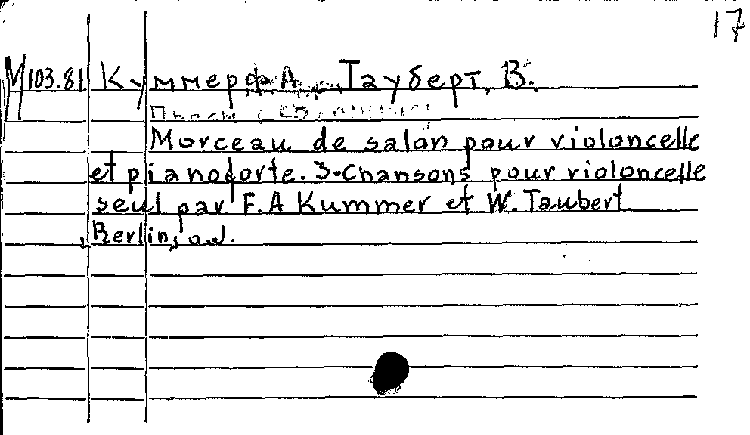 17
М103.81 Куммер, Ф.А., Тауберт, В.
Morceau de salon pour violoncelle
et pianoforte. 3-Chansons pour violoncelle
seul par F.A Kummer et W. Taubert
Berlin,